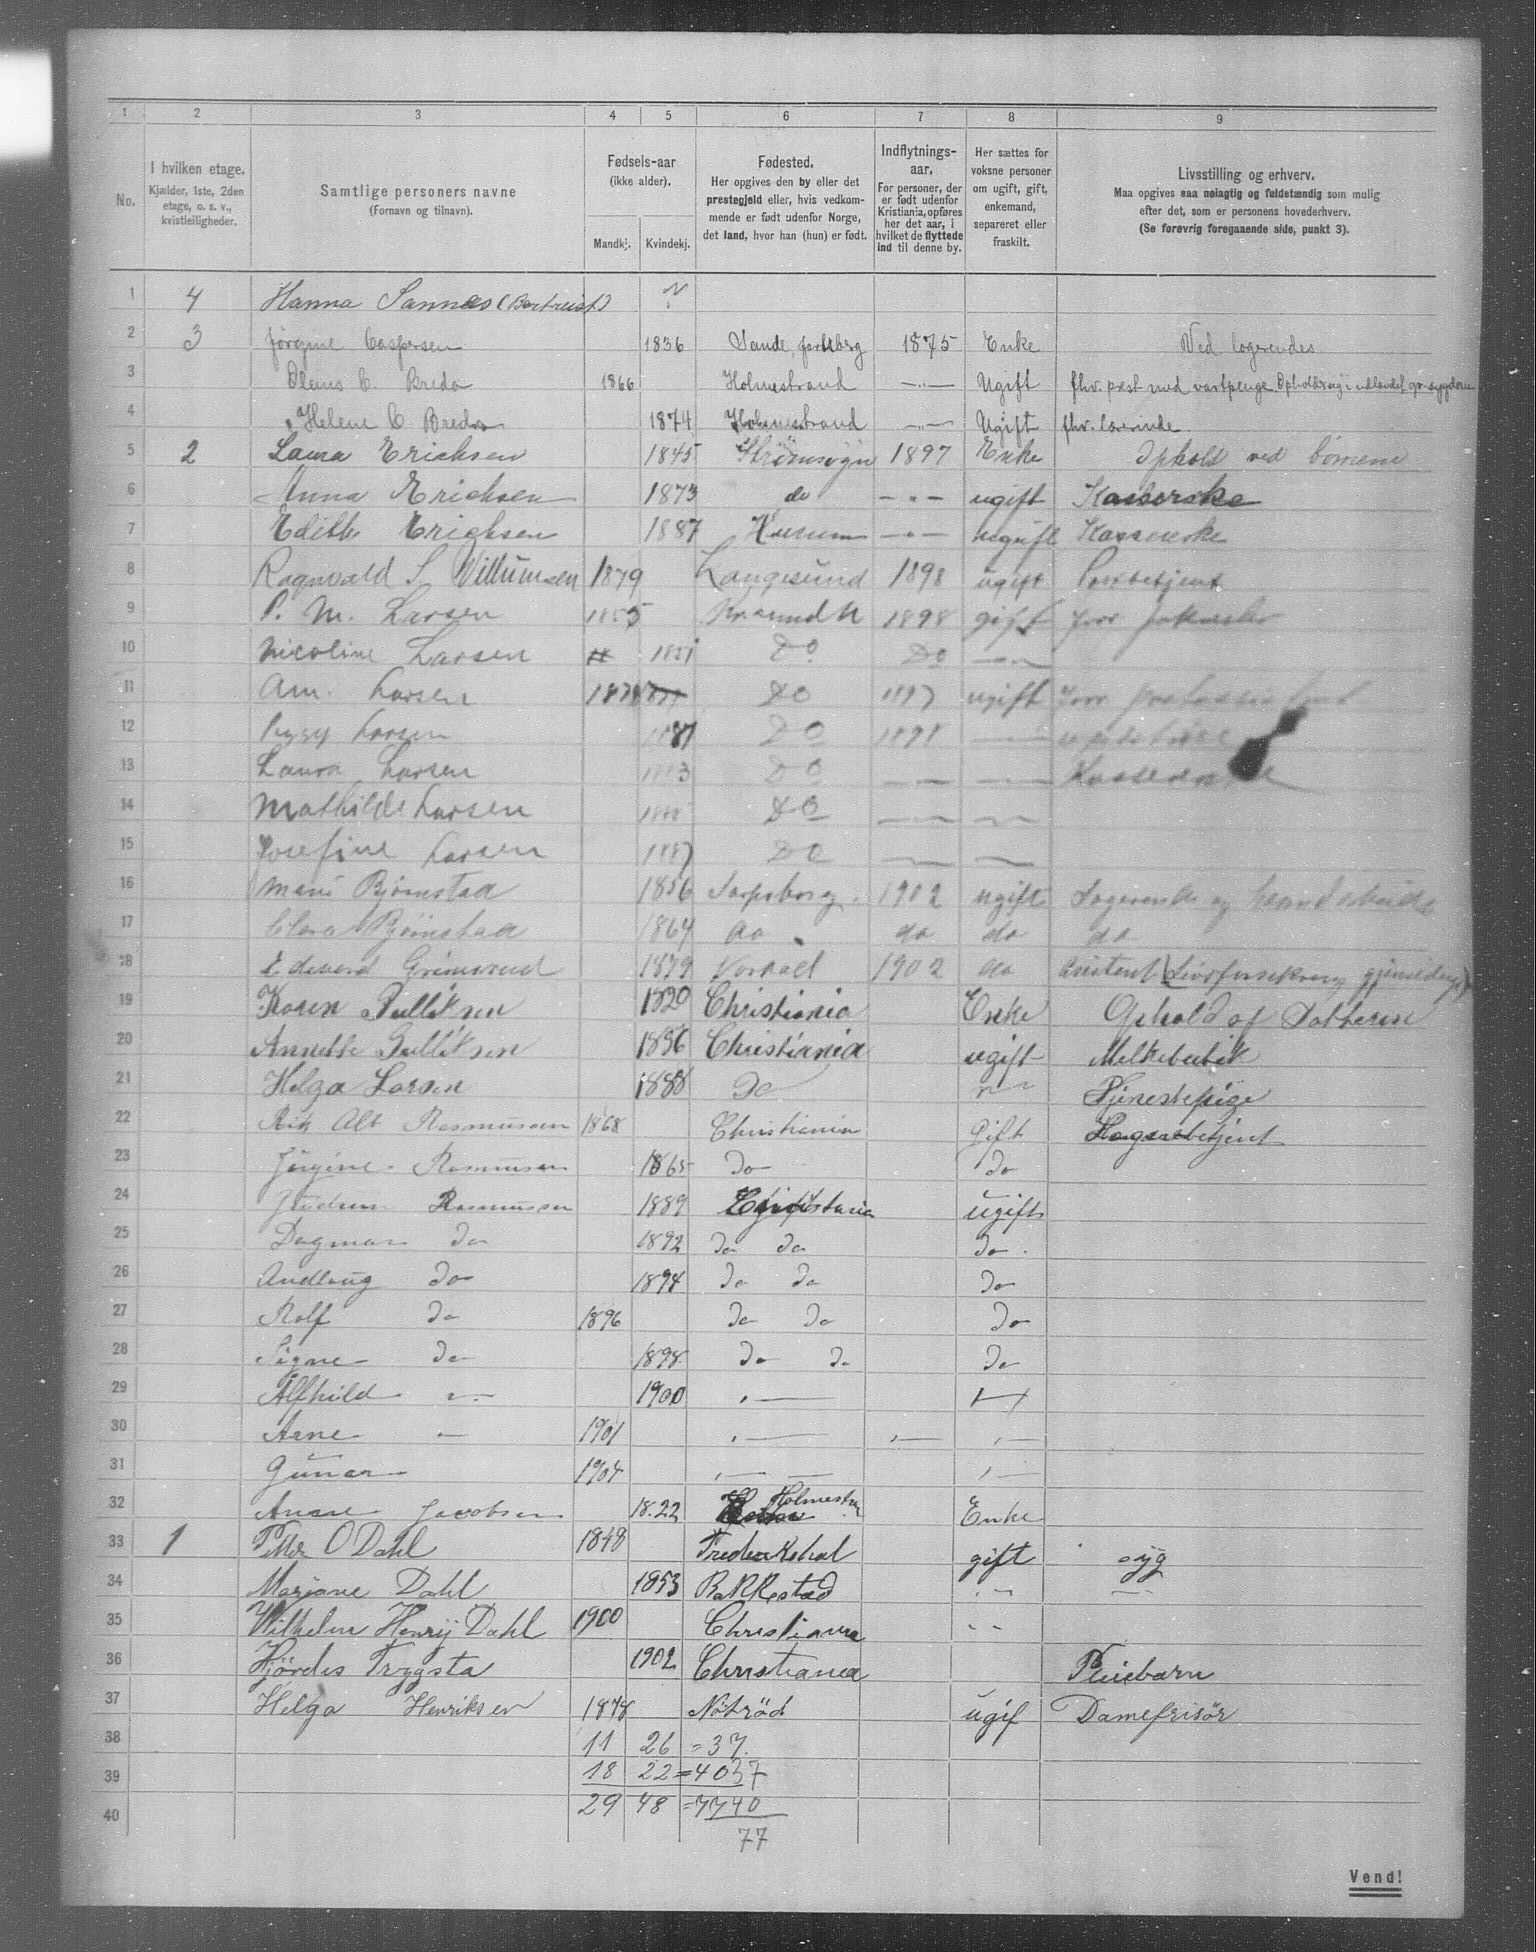 1 2 3 4 5 6 7 8 9
No.
I hvilken etage.
Kjælder, 1ste, 2den
etage, o. s. v.,
kvistleiligheder.
Samtlige personers navne
(Fornavn og tilnavn).
Fødsels-aar
(ikke alder).
Mandkj. Kvindekj.
Fødested.
Her opgives den by eller det
prestegjeld eller, hvis vedkom-
mende er født udenfor Norge,
det land, hvor han (hun) er født.
Indflytnings-
aar.
For personer, der
er født udenfor
Kristiania, opføres
her det aar, i
hvilket de flyttede
ind til denne by.
Her sættes for
voksne personer
om ugift, gift,
enkemand,
separeret eller
fraskilt.
Livsstilling og erhverv.
Maa opgives saa nøiagtig og fuldstændig som mulig
efter det, som er personens hovederhverv.
(Se forøvrig foregaaende side, punkt 3).
1 4 Hanna Sannæs (Bortreist) ?
2 3 Jörgine Caspersen 1836 Sande, Jarlsberg 1875 Enke Ved logerendes
3 Olaus C. Bredo 1866 Holmestrand —"— Ugift fhv. prest med vartpenge
4 Helene C. Bredo 1874 Holmestrand —"— Ugift fhv. lærerinde.
5 2 Laura Ericksen 1845 Strømsogn 1897 Enke Ophold ved børnene
6 Anna Erichsen 1873 do —"— ugift Kasserske
7 Edith Erichsen 1887 Hurum —"— ugift Kasserske
8 Ragnvald S. Willumsen 1879 Langesund 1898 ugift Postbetjent
9 P. M. Larsen 1855 Kr.sund N 1898 gift
10 Nicoline Larsen 1851 Do Do —"—
11 Am. Larsen 1878 Do 1897 ugift
12 Larsen 1881 Do 1898 —
13 Laura Larsen 1883 Do — —
14 Mathilde Larsen Do — —
15 Josefine Larsen 1887 Do — —
16 Marie Bjørnstad 1856 Sarpsborg. 1902 ugift Logerende og haandarbeide
17 Clara Bjørnstad 1864 do do do do
18 Edvard Grimsrud 1879 1902 do Assistent (Livsforsikring
19 Karen Gulliksen 1820 Christiania Enke Ophold af Datteren
20 Annette Gulliksen 1856 Christiania ugift Melkebutik
21 Helga Larsen 1888 Do —"— Tjenestepige
22 Alb Rasmussen 1868 Christiania Gift Lagerbetjent
23 Jörgine Rasmussen 1865 Do Do
24 Gudrun Rasmussen 1889 Christiania ugift
25 Dagmar Do 1892 Do Do Do
26 Andlaug Do 1894 Do Do Do
27 Rolf Do 1896 Do Do Do
28 Signe Do 1898 Do Do Do
29 Alfhild —"— 1900 —"— —"—
30 Arne — 1901 —"— —"— —"—
31 Gunar — 1904 —"— —"—
32 Anne Jacobsen 18.22 Holmestr. Enke
33 1 Petter O Dahl 1848 Frederikshal gift syg
34 Marjane Dahl 1853 Rakkestad —"— —"—
35 Wilhelm Henrij Dahl 1900 Christiania —"—
36 Hjördis Trygsta 1902 Christiania Pleiebarn
37 Helga Henriksen 1878 Nötröd ugif Damefrisör
38 11 26 = 37.
39 18 22 = 40 37
40 29 48 = 77 40
77
Vend!